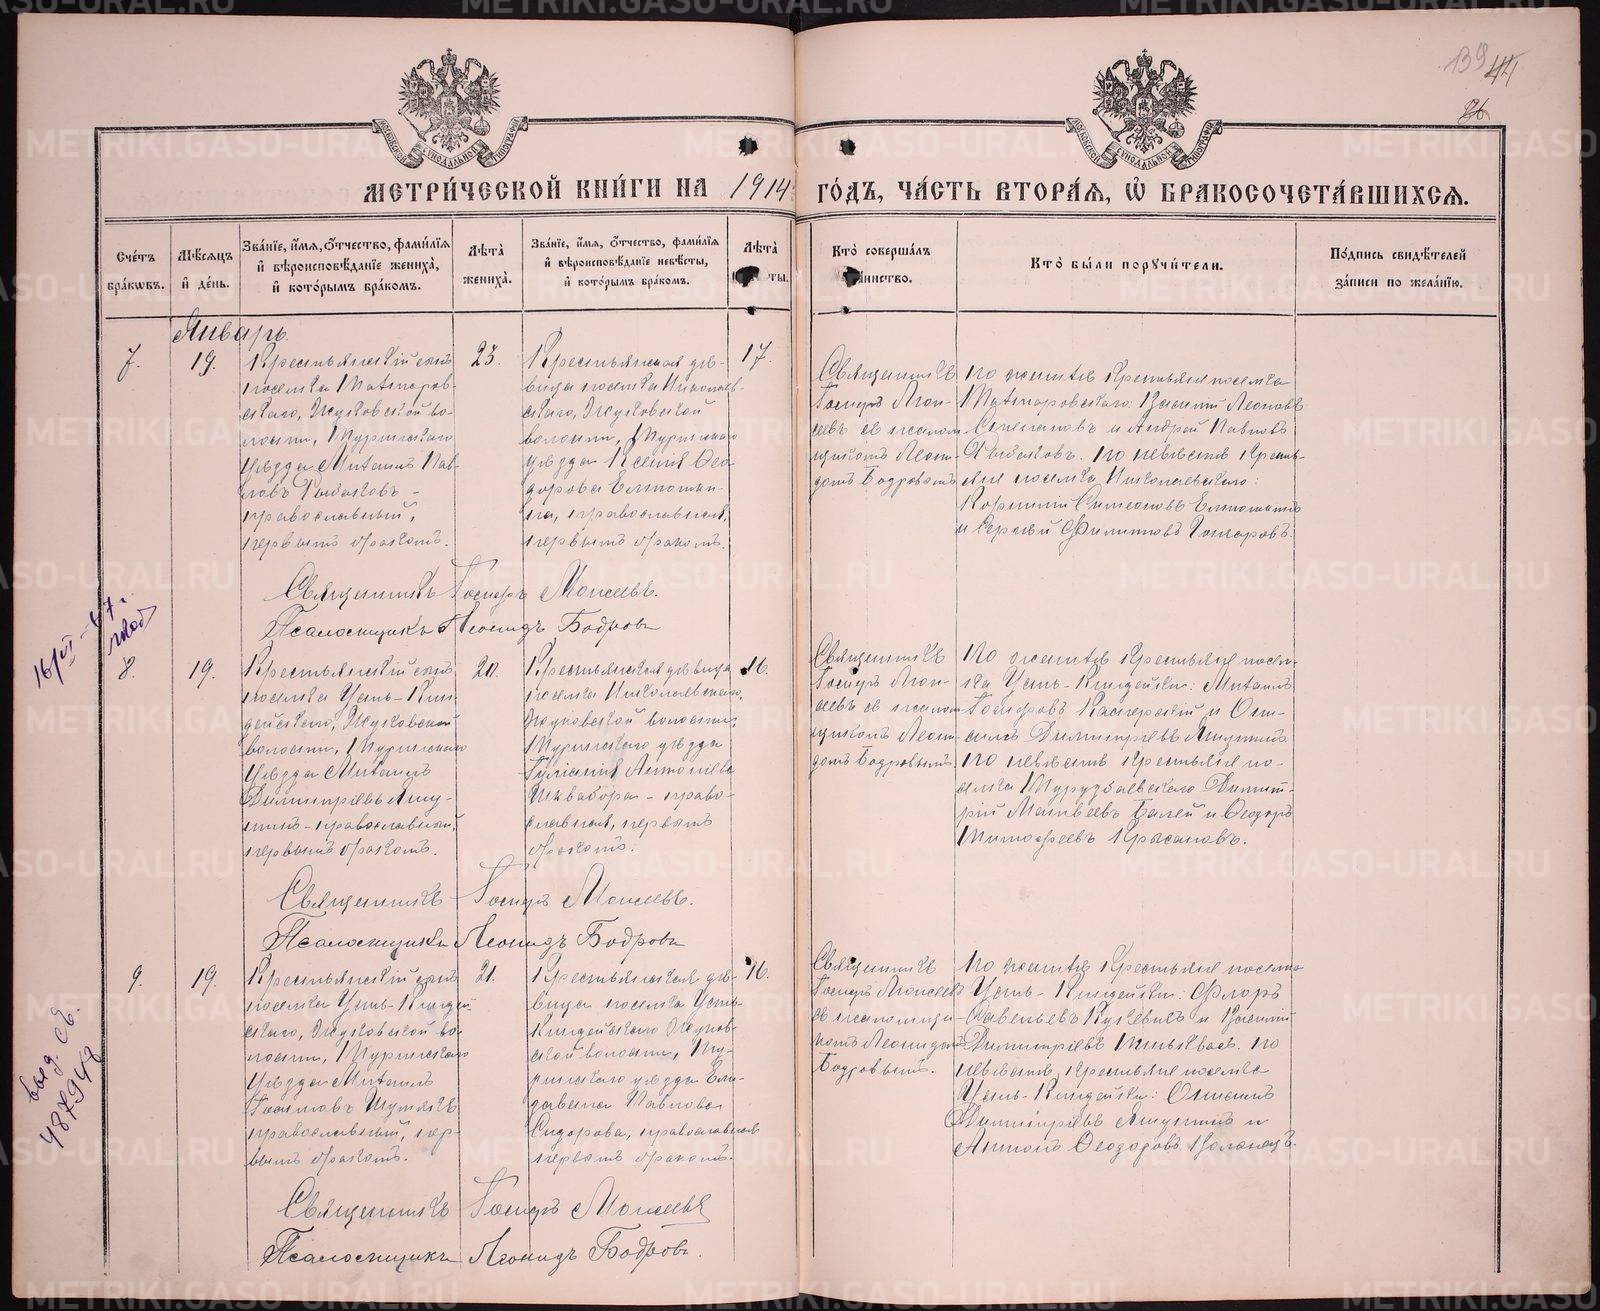 139
44
26
МЕТРИ́ЧЕСКОЙ КНИ́ГИ НА 1914 ГО́ДЪ, ЧА́СТЬ ВТОРА́Я, Ѡ҆ БРАКОСОЧЕТА́ВШИХСЯ.
Сче́тъ бра́кѡвъ.
Мѣ́сяцъ и҆ де́нь.
Зва́нїе, и҆́мя, о҆́тчество, фами́лїя и҆ вѣроисповѣ́данїе жениха̀, и҆ кото́рымъ бра́комъ.
Лѣ́та жениха̀.
Зва́нїе, и҆́мя, о҆́тчество, фами́лїя и҆ вѣроисповѣ́данїе невѣ́сты, и҆ кото́рымъ бра́комъ.
Лѣ́та
Кто̀ соверша́лъ
Кто̀ бы́ли порꙋчи́тели.
По́дпись свидѣ́телей за́писи по жела́нїю.
Январь.
7.
19.
Крестьянскій сынъ
поселка
скаго, Жуковской во-
лости, Туринскаго
уѣзда Михаилъ Пав-
ловъ Рыбаковъ -
православный,
первымъ бракомъ.
23.
Крестьянская дѣ-
вица поселка Николаев-
скаго, Жуковской
волости, Туринскаго
уѣзда Ксенія Ѳео-
дорова
православная,
первымъ бракомъ.
17.
Священникъ
Іосифъ Мои-
сеевъ съ псалом-
щикомъ Леони-
домъ Бодровымъ
По женихѣ крестьяне поселка
Василій Леоновъ
Степановъ и Андрей Павловъ
Рыбаковъ. По невѣстѣ кресть-
яне поселка Николаевскаго:
Корнилій Симеоновъ
и Сергѣй Филипповъ Гончаровъ.
Священникъ Іосифъ Моисеевъ.
Псаломщикъ Леонидъ Бодровъ
8.
19.
Крестьянскій сынъ
поселка Усть-Кин-
дейскаго, Жуковской
волости, Туринскаго
уѣзда Михаилъ
Димитріевъ
православный,
первымъ бракомъ.
20.
Крестьянская дѣвица
поселка Николаевскаго,
Жуковской волости,
Туринскаго уѣзда
Іуліанія Антоніева
Шквабора - право-
славная, первымъ
бракомъ.
16.
Священникъ
Іосифъ Мои-
сеевъ съ псалом-
щикомъ Леони-
домъ Бодровымъ
По женихѣ крестьяне посел-
ка Усть-Киндейскаго: Михаилъ
Іосифовъ Касперскій и Они-
симъ Димитріевъ
По невѣстѣ крестьяне по-
селка Турузбаевскаго Димит-
рій Матвѣевъ Балей и Ѳеодоръ
Тимофеевъ
Священникъ Іосифъ Моисеевъ.
Псаломщикъ Леонидъ Бодровъ
9.
19.
Крестьянскій сынъ
поселка Усть-Киндей-
скаго, Жуковской во-
лости, Туринскаго
уѣзда Михаилъ
православный, пер-
вымъ бракомъ.
21.
Крестьянская дѣ-
вица поселка Усть-
Киндейскаго Жуков-
ской волости, Ту-
ринскаго уѣзда Ели-
завета Павлова
Сидорова, православная
первымъ бракомъ.
16.
Священникъ
Іосифъ Моисеевъ
съ псаломщи-
комъ Леонидомъ
Бодровымъ.
По женихѣ крестьяне поселка
Усть-Киндейскаго: Флоръ
Савельевъ Куцевичъ и Василій
Димитріевъ По
невѣстѣ, крестьяне поселка
Усть-Киндейскаго: Онисимъ
Димитріевъ и
Антонъ Ѳеодоровъ
Священникъ Іосифъ Моисеевъ
Псаломщикъ Леонидъ Бодровъ.
16/VI-67г.
выд. св.
487948
METRIKI.GASO-URAL.RU